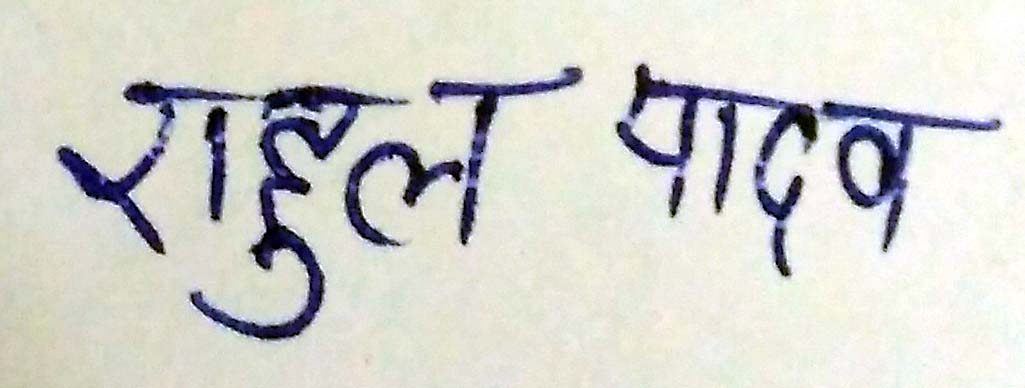 राहुल यादव